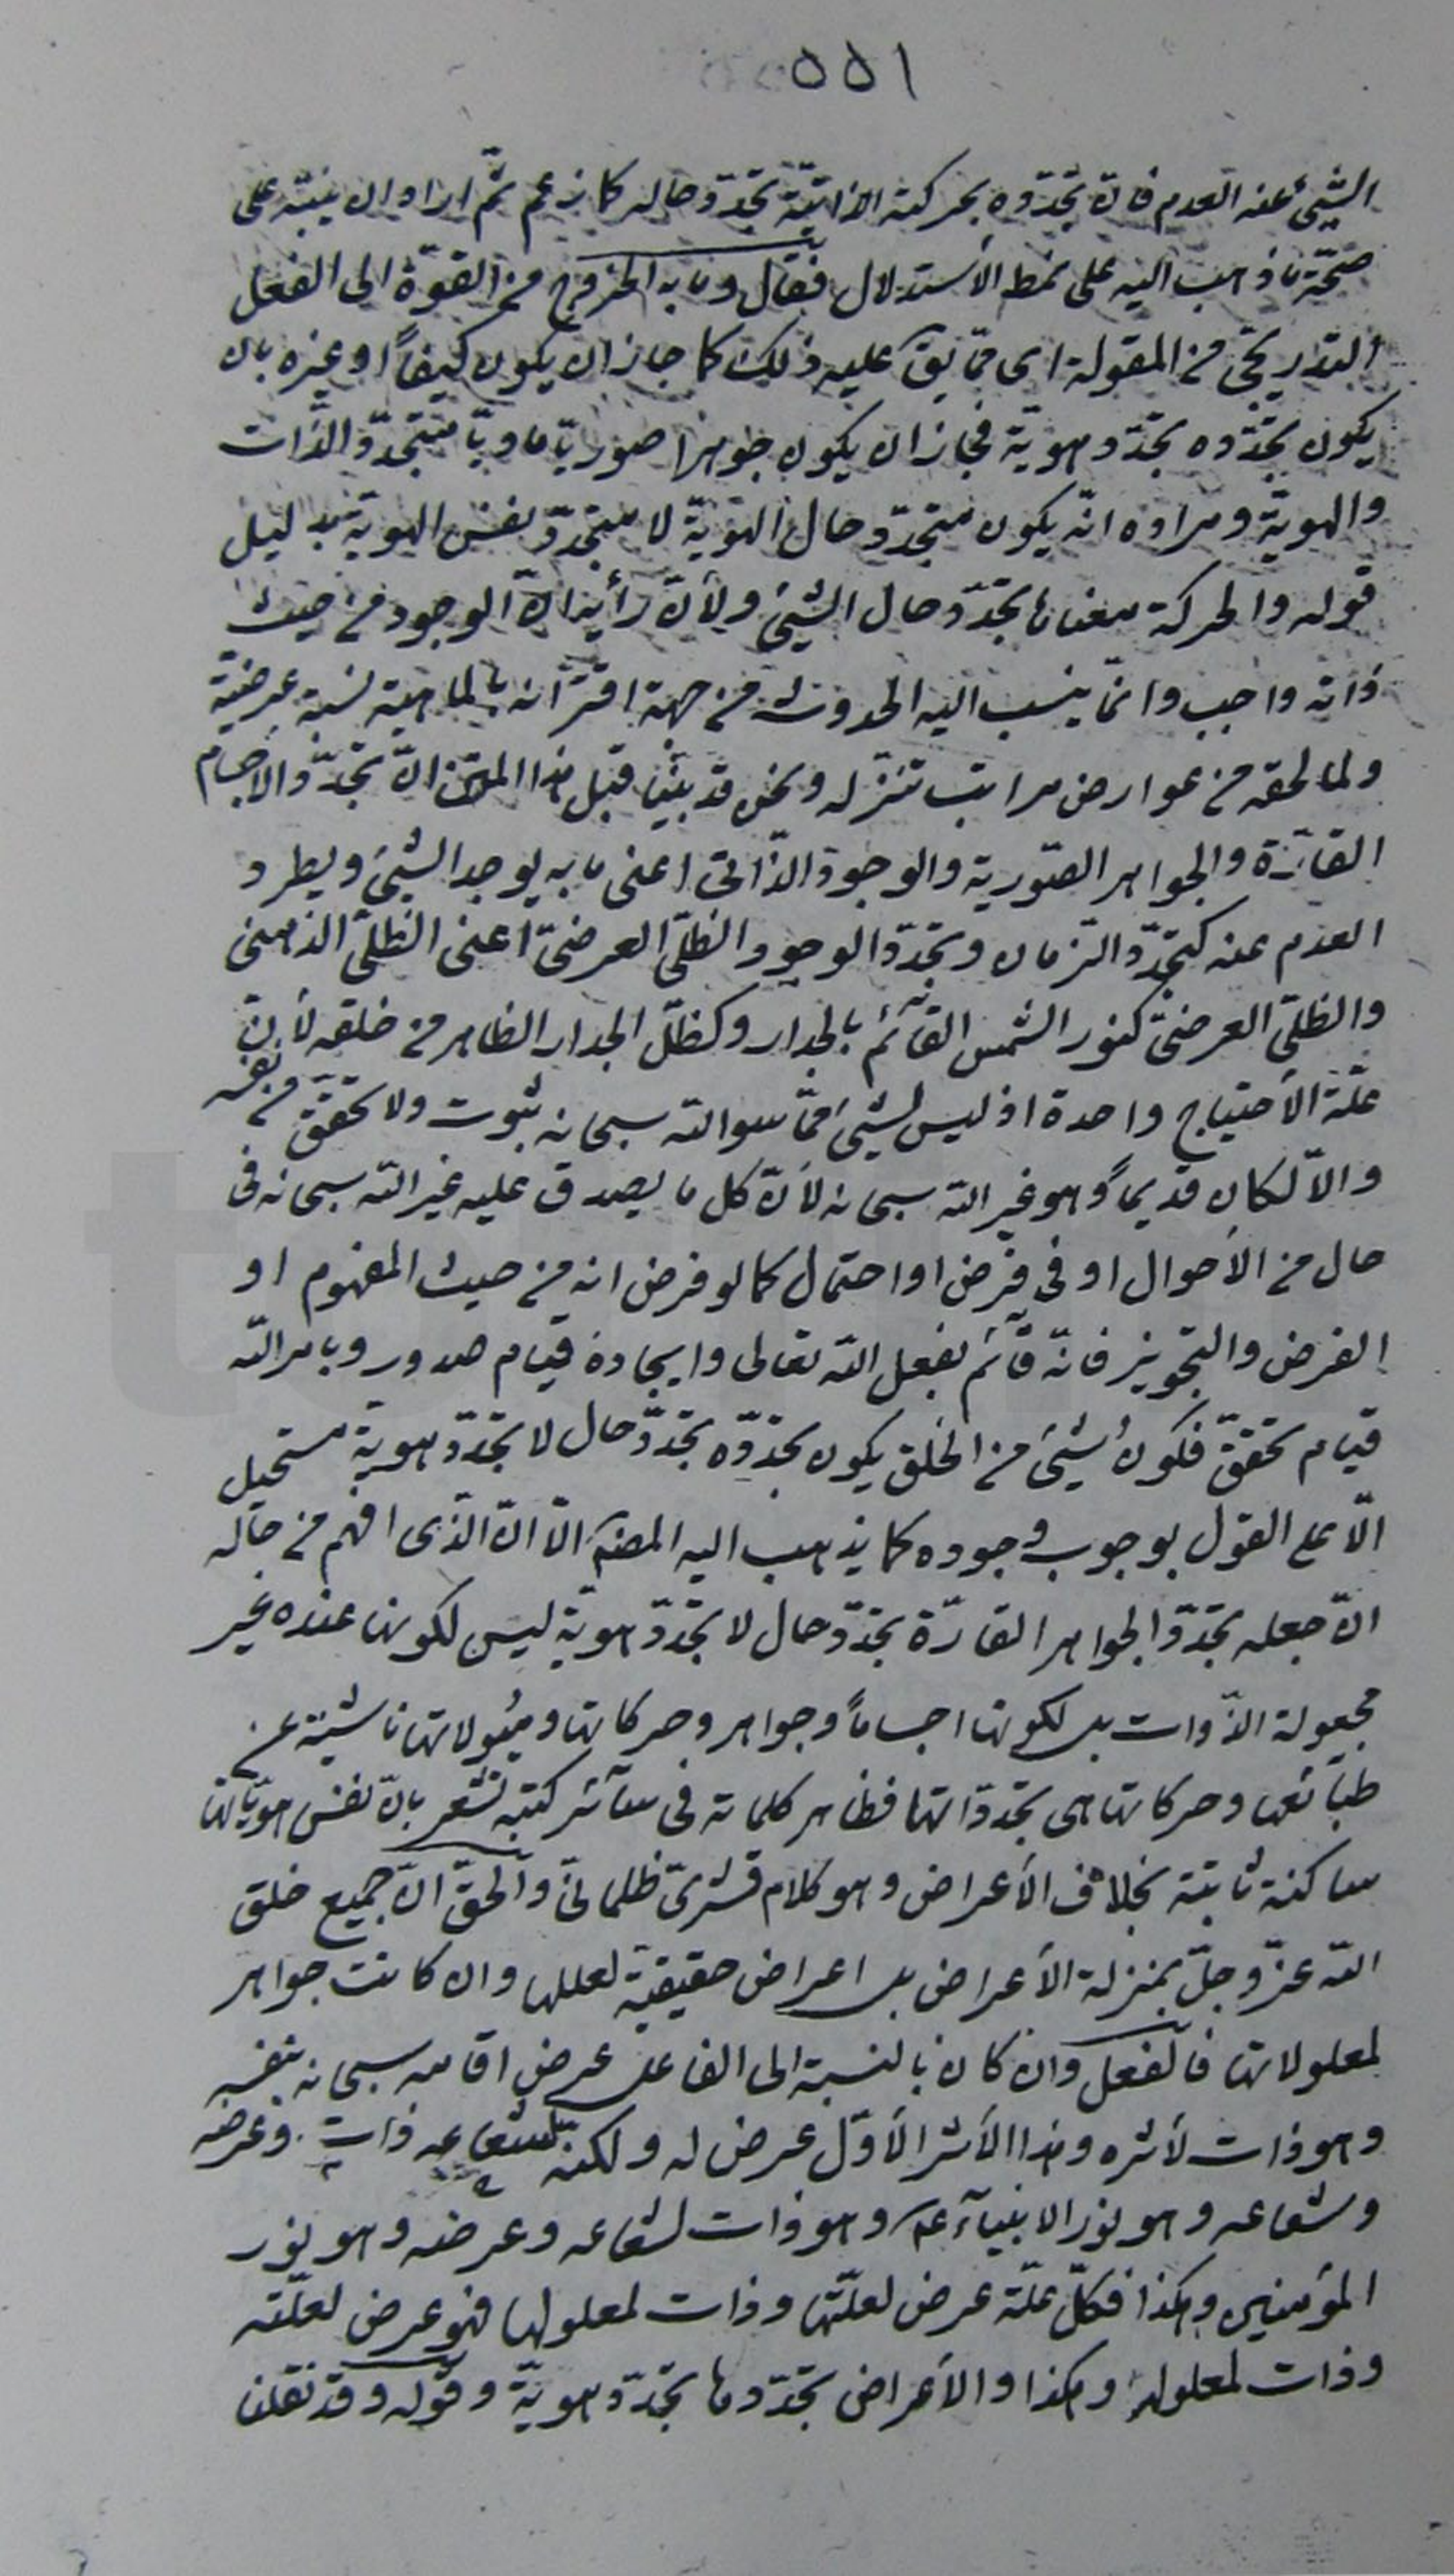 ٥٥١
الشيئ عنه العدم فانّ تجدّده بحركته الذاتيّة تجدّد حاله كما زعم ثمّ اراد ان ينبّه على
صحّة ما ذهب اليه على نمط الأستدلال فقال وما به الخروج من القوّة الى الفعل
التدريجى من المقولة اى ممّا يقَ عليه ذلك كما جاز ان يكون كيفاً او غيره بان
يكون تجدّده تجدّد هويّة فجاز ان يكون جوهرا صوريّا ماديّا متجدّد الذّات
والهويّة ومراده انّه يكون متجدّد حال الهويّة لا متجدّد نفس الهوية بدليل
قوله والحركة معناها تجدّد حال الشيئ ولأنّ رأيه انّ الوجود من حيث
ذاته واجب وانّما ينسب اليه الحدوث من جهة اقترانه بالماهية نسبة عرضيّة
ولما لحقه من عوارض مراتب تنزّله ونحن قد بيّنا قبل هذا المتن انّ تجدّد الاجسام
القارّة والجواهر الصّورية والوجود الذّاتى اعنى ما به يوجد الشيئ ويطرد
العدم عنه كتجدّد الزمان وتجدّد الوجود الظلّى العرضىّ اعنى الظلّى الذهنى
والظلّى العرضىّ كنور الشمس القآئم بالجدار وكظلّ الجدار الظاهر من خلقه لأنّ
علّة الأحتياج واحدة اذ ليس لشيئ ممّا سوالله سبحانه ثبوت ولا تحقّق من نفسه
والاّ لكان قديماً وهو غير الله سبحانه لأنّ كل ما يصدق عليه غير الله سبحانه فى
حال من الأحوال او فى فرض او احتمال كما لو فرض انه من حيث المفهوم او
الفرض والتجويز فانّه قآئم بفعل الله تعالى وايجاده قيام صدور وبامر الله
قيام تحقّق فكون شيئ من الخلق يكون تجدّده تجدّد حال لا تجدّد هويّة مستحيل
الاّ على القول بوجوب وجوده كما يذهب اليه المصنَّ الاّ انّ الذى افهم من حاله
انّ جعله تجدّد الجواهر القارّة تجدّد حال لا تجدّد هويّة ليس لكونها عنده غير
مجعولة الذّوات بل لكونها اجساماً وجواهر وحركاتها وميُولاتها ناشئة عن
طبآئعها وحركاتها هى تجدّداتها فظاهر كلماته فى سآئر كتبه تشعر بانّ نفس هويّاتها
ساكنة ثابتة بخلاف الأعراض وهو كلام قشرىّ ظلمانىّ والحقّ انّ جميع خلق
الله عزّ وجلّ بمنزلة الأعراض بل اعراض حقيقيّة لعللها وان كانت جواهر
لمعلولاتها فالفعل وان كان بالنسبة الى الفاعل عرض اقامه سبحانه بنفسه
وهو ذات لأثره وهذا الأثر الأوّل عرض له ولكنّه لشعاعه ذات وعرضه
وشعاعه وهو نور الانبيآء عم وهو ذات لشعاعه وعرضه وهو نور
المؤمنين وهكذا فكلّ علّة عرض لعلّتها وذات لمعلولها فهو عرض لعلّته
وذات لمعلوله وهكذا والأعراض تجدّدها تجدّد هويّة وقوله وقد نقلنا